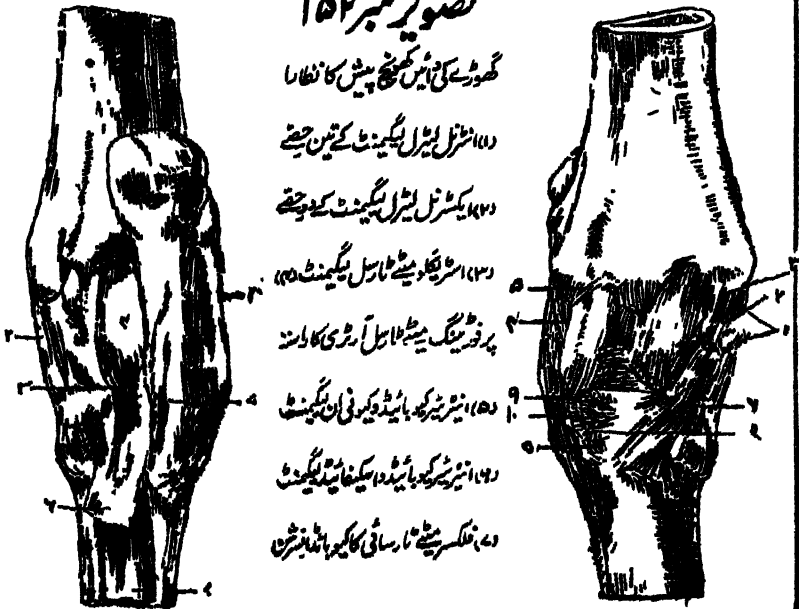 تصویر نمبر ۱۵۲
گھوڑے کی دائیں کھونچ پیش کا نظارا
(۱) انٹرنل لیٹرل لیگیمنٹ کے تین حصے
(۲) ایکسٹرنل لیٹرل لیگیمنٹ کے دو حصے
(۳) اسٹریگلو میٹے ٹارسل لیگیمنٹ (۴)
پرفوریٹنگ میٹے ٹارسل آرٹری کا راستہ
(۵) انٹیریر کیوبائیڈو کیونی ان لیگیمنٹ
(۶) انٹیریر کیوبائیڈو اسکیفائیڈ لیگیمنٹ
(۷) فلکسر میٹے ٹارسائی کا کیوبائڈ انسرشن